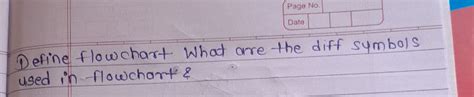 Page No.
Date
Define flowchart What are the diff symbols
used in flowchart &